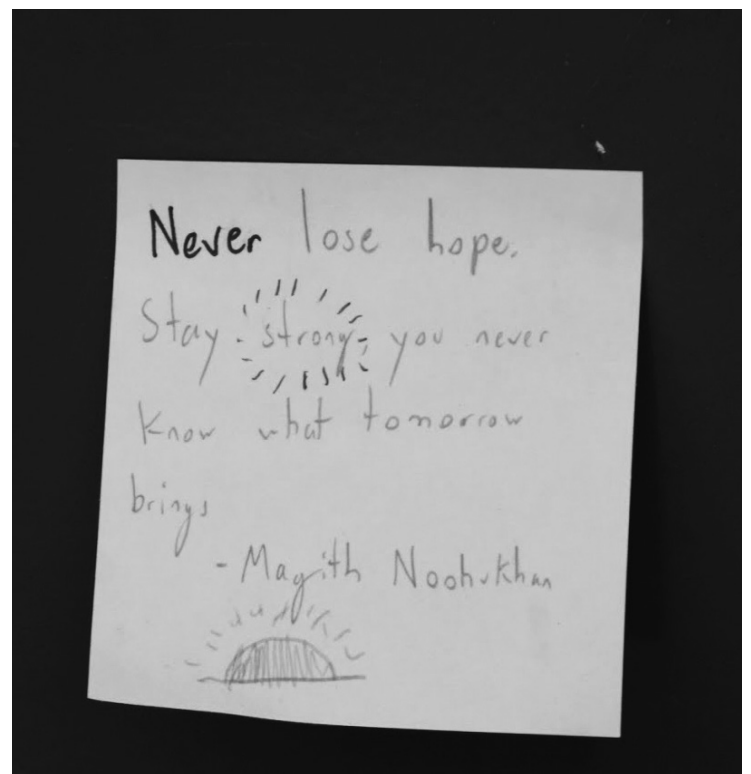 Never lose hope.
Stay strong you never
know what tomorrow
brings
- Magith Noohukhan